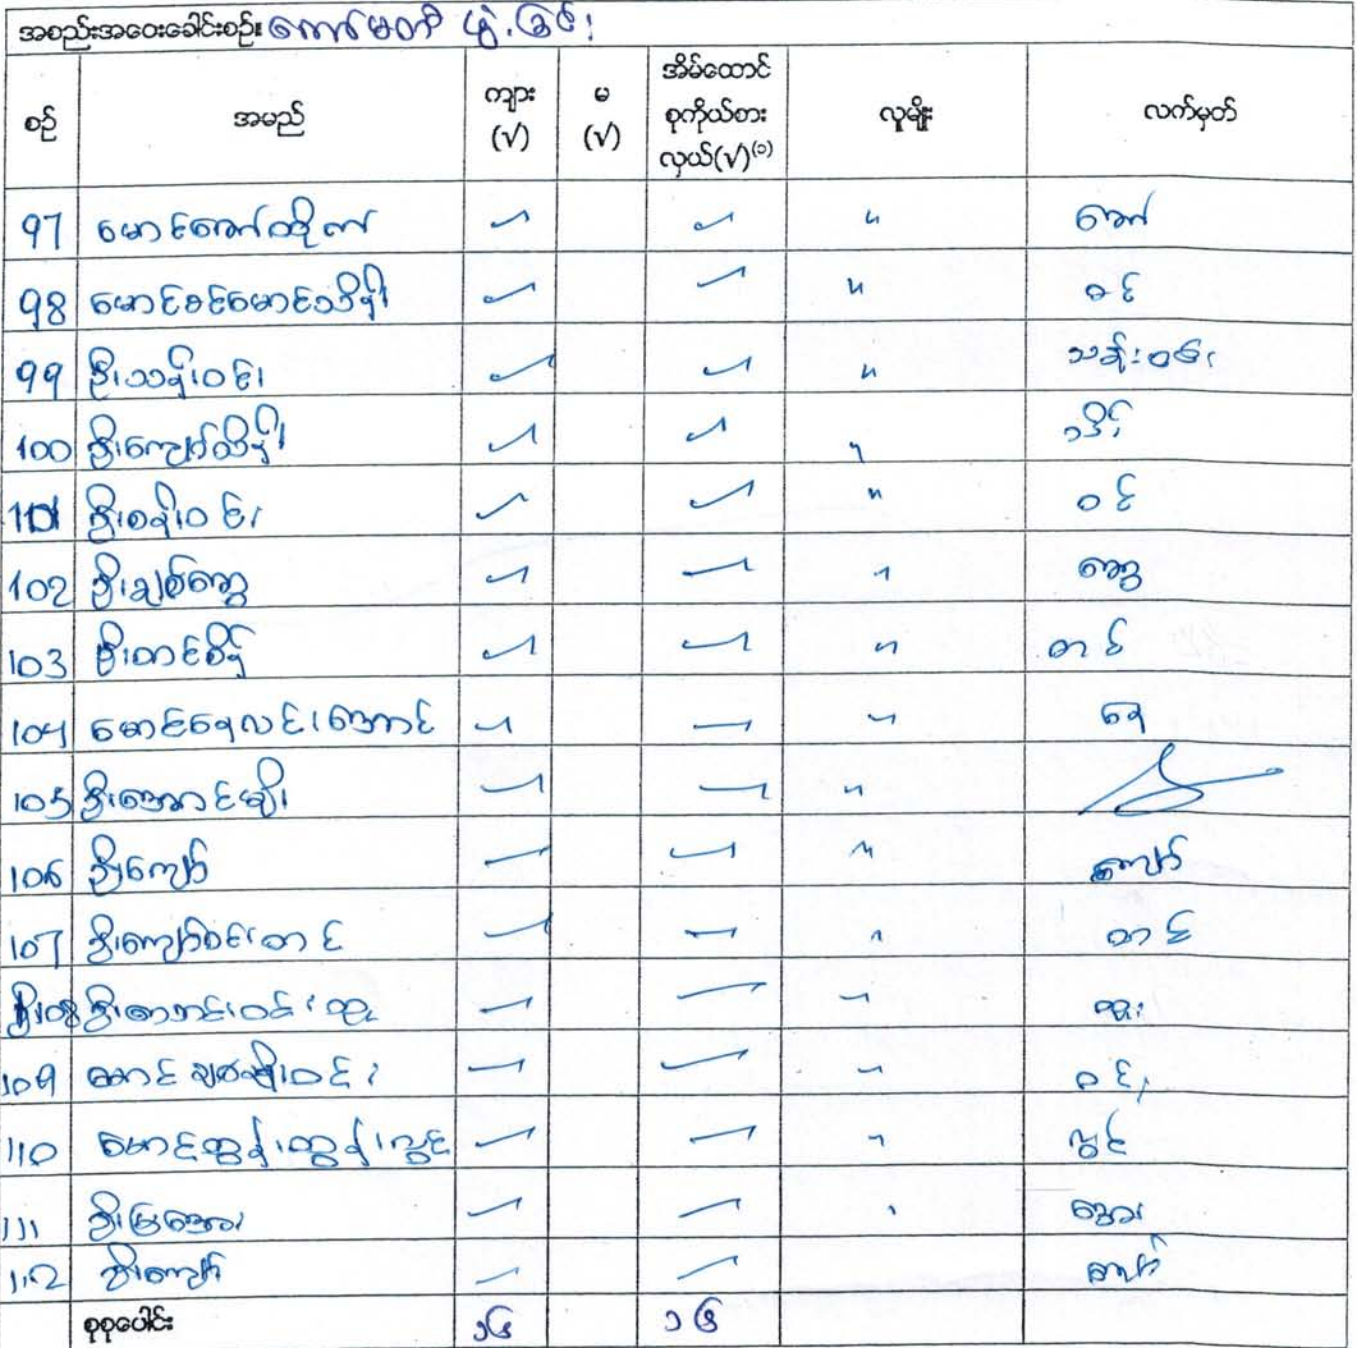 အစည်းအဝေးခေါင်းစဉ်။ ကော်မတီ ဖွဲ့ခြင်း
စဉ် အမည် ကျား (√) မ (√) အိမ်ထောင်စုကိုယ်စားလှယ်(√)⁽¹⁾ လူမျိုး လက်မှတ်
97 " ကော်
98 " ဝင်
99 ဦးသန်းဝင်း " သန်းဝင်း
100 ဦးကျော်သိန်း " သိန်း
101 ဦးစန်းဝင်း " ဝင်
102 ဦးချစ်ဆွေ " ဆွေ
103 ဦးတင်စိန် " တင်
104 မောင်နေလင်းအောင် " နေ
105 ဦးအောင်မျိုး "
106 ဦးကျော် " ကျော်
107 ဦးကျော်ဝင်းတင် " တင်
108 "
109 " ဝင်း
110 မောင်ထွန်းထွန်းလွင် " လွင်
111 ဦးမြအေး " အေး
112 ဦးကျော် ကျော်
စုစုပေါင်း ၁၆ ၁၆